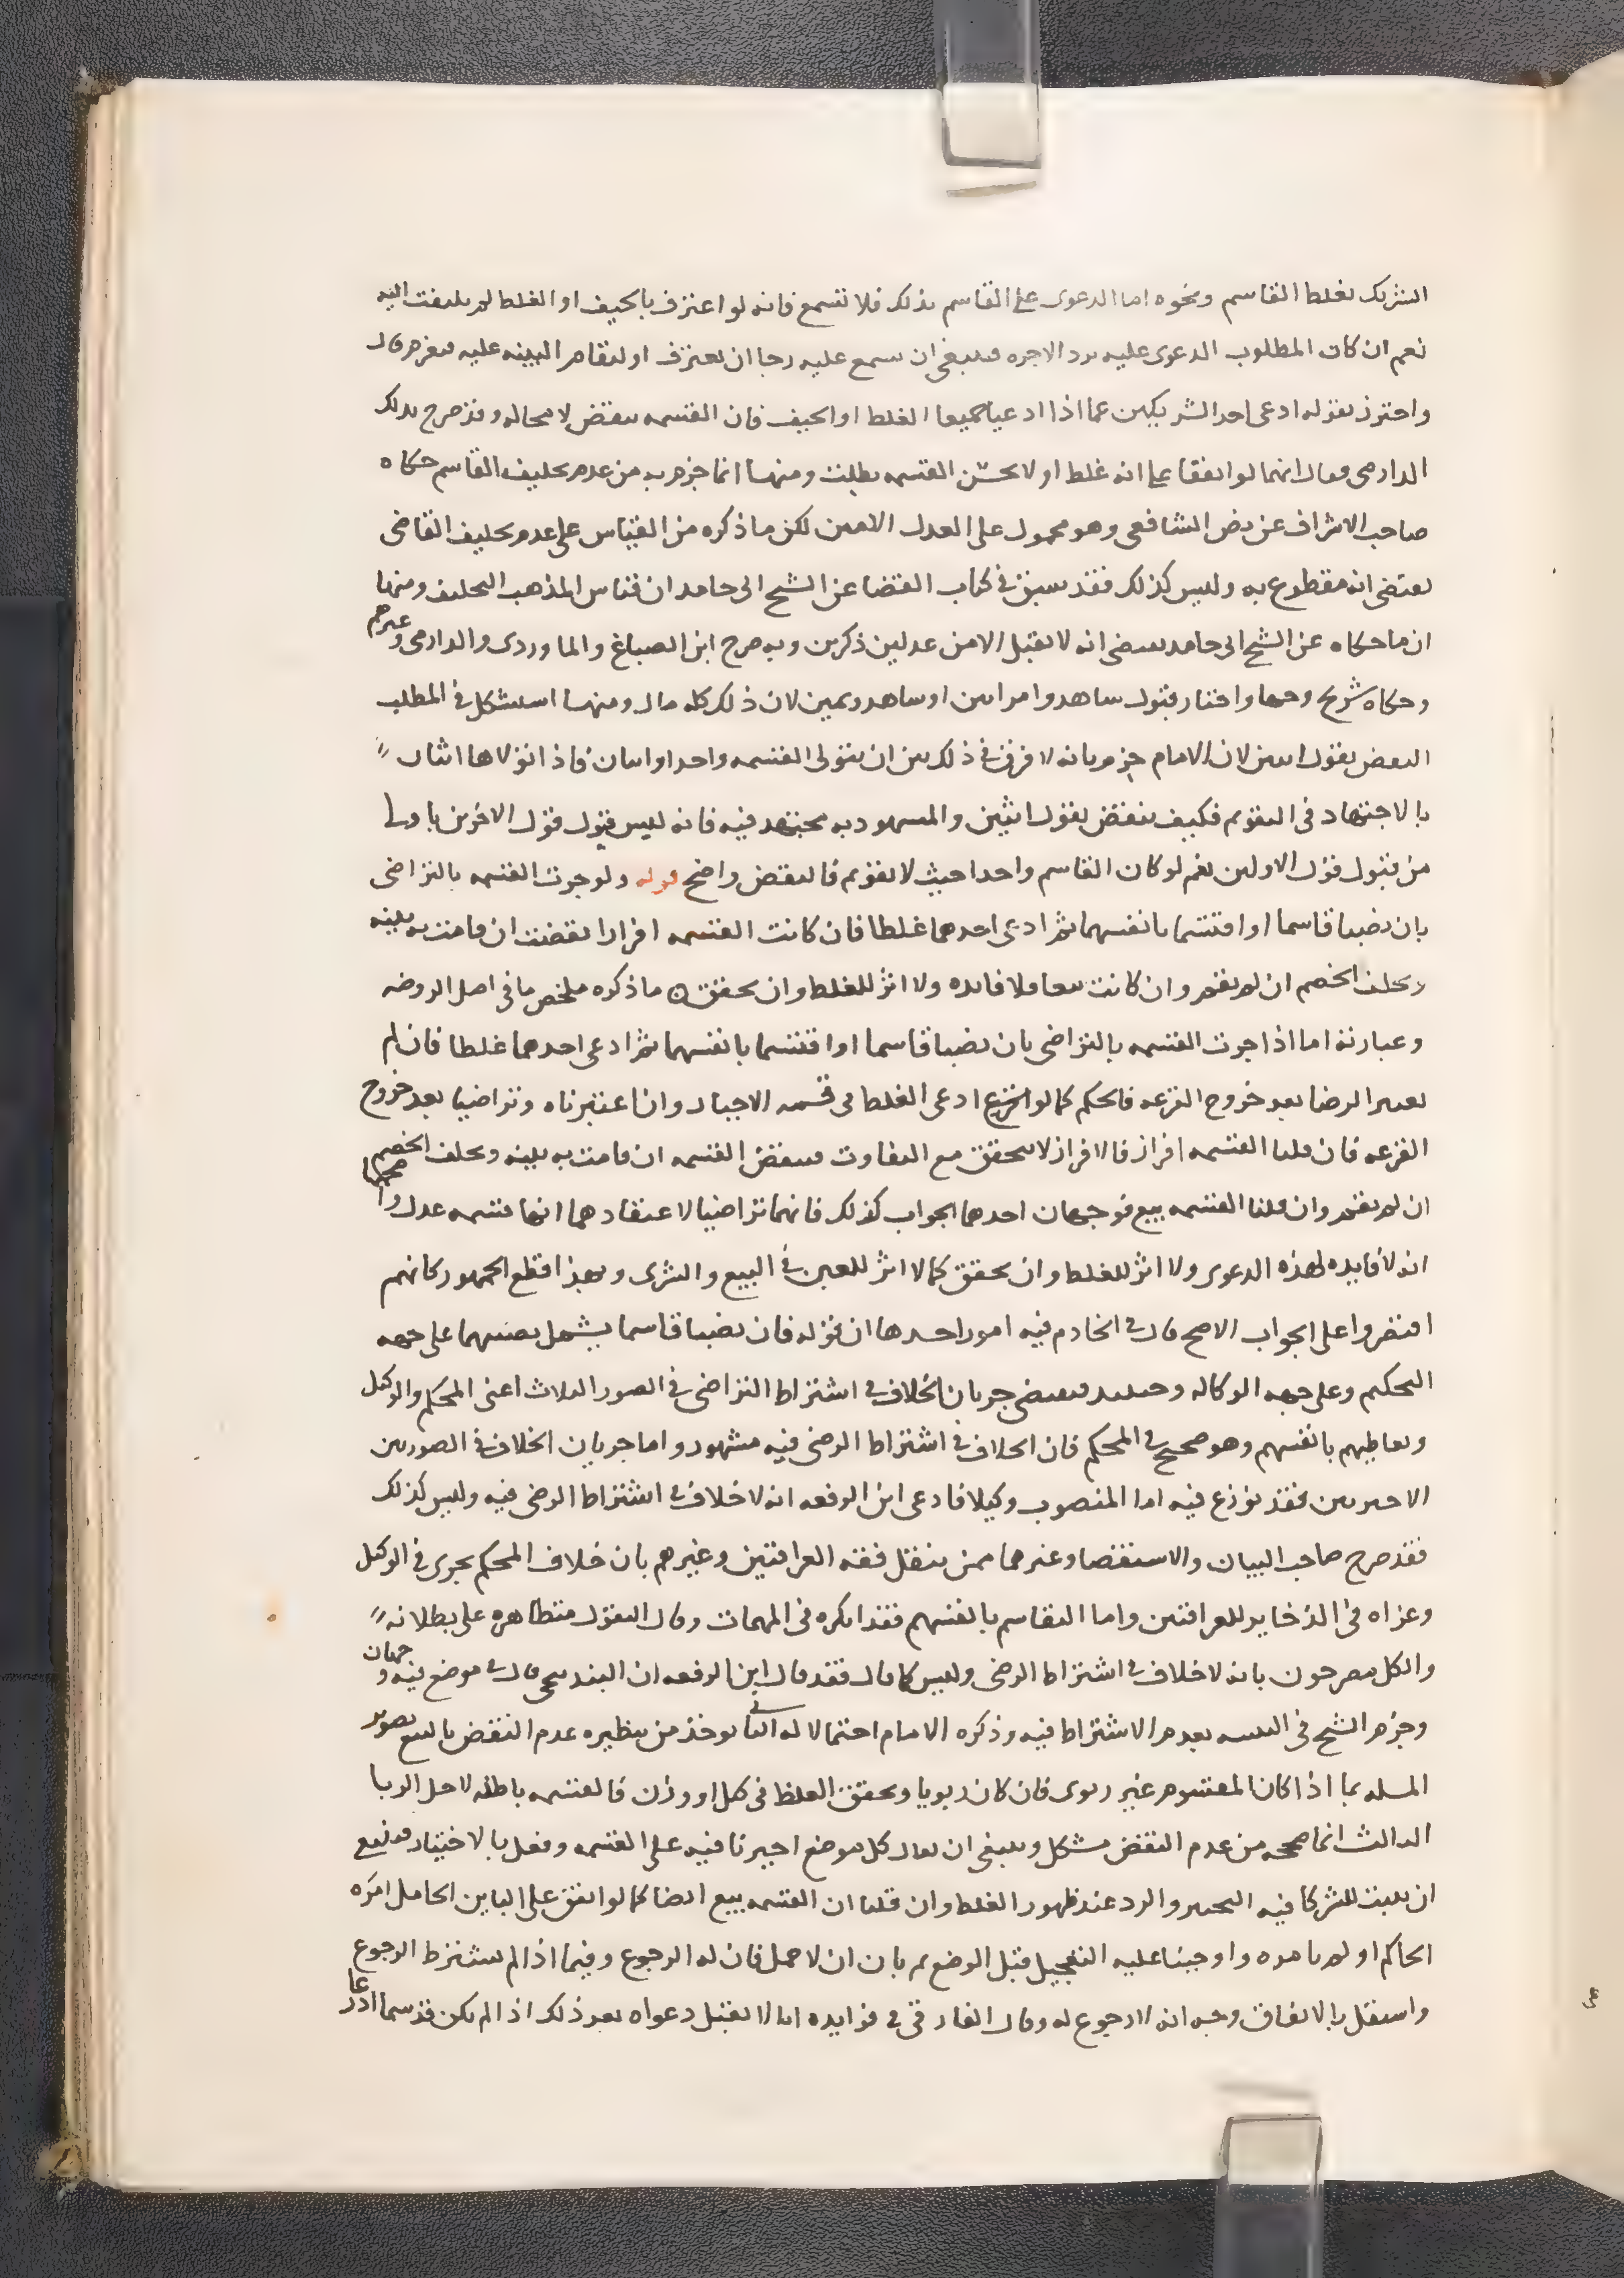 الشريك بغلط القاسم ونحوه اما الدعوى على القاسم بذلك فلا تسمع فانه لو اعترف بالحيف او الغلط لم يلتفت اليه
نعم ان كان المطلوب الدعوى عليه برد الاجره فينبغى ان تسمع عليه رجا ان يعترف او تقام البينه عليه فيغرم قال
واحترز بقوله ادعى احد الشريكين عما اذا ادعيا جميعا الغلط او الحيف فان القسمه تنقض لا محاله وقد صرح بذلك
الدارمى فقال انهما لو اتفقا على انه غلط او لا يحسن القسمه بطلت ومنها انما جزم به من عدم تحليف القاسم حكاه
صاحب الاشراف عن نص الشافعى وهو محمول على العدل الامين لكن ما ذكره من القياس على عدم تحليف القاضى
يقتضى انه مقطوع به وليس كذلك فقد سبق فى كتاب القضا عن الشيخ ابى حامد ان قياس المذهب التحليف ومنها
ان ما حكاه عن الشيخ ابى حامد يقتضى انه لا يقبل الا من عدلين ذكرين وبه صرح ابن الصباغ والماوردى والدارمى وغيرهم
وحكاه شريح وجها واختار قبول شاهد وامراتين او شاهد ويمين لان ذلك كله مال ومنها استشكل فى المطلب
النقض بقول اثنين لان الامام جزم بانه لا فرق فى ذلك بين ان يتولى القسمه واحد او اثنان فاذا تولاها اثنان
بالاجتهاد فى التقويم فكيف ينقض بقول اثنين والمشهود به مجتهد فيه فانه ليس قبول قول الاخرين باولى
من قبول قول الاولين نعم لو كان القاسم واحدا حيث لا تقويم فالنقض واضح قوله ولو جرت القسمه بالتراضى
بان نصبا قاسما او اقتسما بانفسهما ثم ادعى احدهما غلطا فان كانت القسمه افرازا نقضت ان قامت به بينه
ويحلف الخصم ان لم تقم وان كانت بيعا فلا فايده ولا اثر للغلط وان تحقق ه ما ذكره ملخص ما فى اصل الروضه
وعبارته اما اذا جرت القسمه بالتراضى بان نصبا قاسما او اقتسما بانفسهما ثم ادعى احدهما غلطا فان لم
يعتبر الرضا بعد خروج القرعه فالحكم كما لو ادعى الغلط فى قسمه الاجبار وان اعتبرناه وتراضيا بعد خروج
القرعه فان قلنا القسمه افراز فالافراز لا يتحقق مع التفاوت فينقض القسمه ان قامت به بينه ويحلف الخصم
ان لم تقم وان قلنا القسمه بيع فوجهان احدهما الجواب كذلك فانهما تراضيا لاعتقادهما انها قسمه عدل واصحهما
انه لا فايده لهذه الدعوى ولا اثر للغلط وان تحقق كما لا اثر للغبن فى البيع والشرى وبهذا قطع الجمهور كانهم
اقتصروا على الجواب الاصح قال فى الخادم فيه امور احدها ان قوله فان نصبا قاسما يشمل نصبهما على جهه
التحكيم وعلى جهه الوكاله وحينئذ فيقتضى جريان الخلاف فى اشتراط التراضى فى الصور الثلاث اعنى المحكم والوكيل
وتعاطيهم بانفسهم وهو صحيح فى المحكم فان الخلاف فى اشتراط الرضى فيه مشهور واما جريان الخلاف فى الصورتين
الاخيرتين فقد نوزع فيه اما المنصوب وكيلا فادعى ابن الرفعه انه لا خلاف فى اشتراط الرضى فيه وليس كذلك
فقد صرح صاحب البيان والاستقصا وغيرهما ممن ينقل فقه العراقيين وغيرهم بان خلاف المحكم يجرى فى الوكيل
وعزاه فى الذخاير للعراقيين واما التقاسم بانفسهم فقد انكره فى المهمات وقال النقول متظاهره على بطلانه
والكل مصرحون بانه لا خلاف فى اشتراط الرضى وليس كما قال فقد قال ابن الرفعه ان البندنيجى قال فى موضع فيه وجهان
وجزم الشيخ فى التنبيه بعدم الاشتراط فيه وذكره الامام احتمالا له الثانى يوخذ من تنظيره عدم النقض بالبيع تصوير
المسله بما اذا كان المقسوم غير ربوى فان كان ربويا وتحقق الغلط فى كيل او وزن فالقسمه باطله لاجل الربا
الثالث انما صححه من عدم النقض مشكل وينبغى ان يقال كل موضع اجبرنا فيه على القسمه وفعل بالاختيار
ان يثبت للشركا فيه التخيير والرد عند ظهور الغلط وان قلنا ان القسمه بيع ايضا كما لو انفق على الباين الحامل امره
الحاكم او لم يامره واوجبنا عليه التعجيل قبل الوضع ثم بان ان لا حمل فان له الرجوع وفيما اذا لم يشترط الرجوع
واستقل بالانفاق وجه انه لا رجوع له وقال الفارقى فى فوايده انما لا يقبل دعواه بعد ذلك اذا لم يكن قد سما